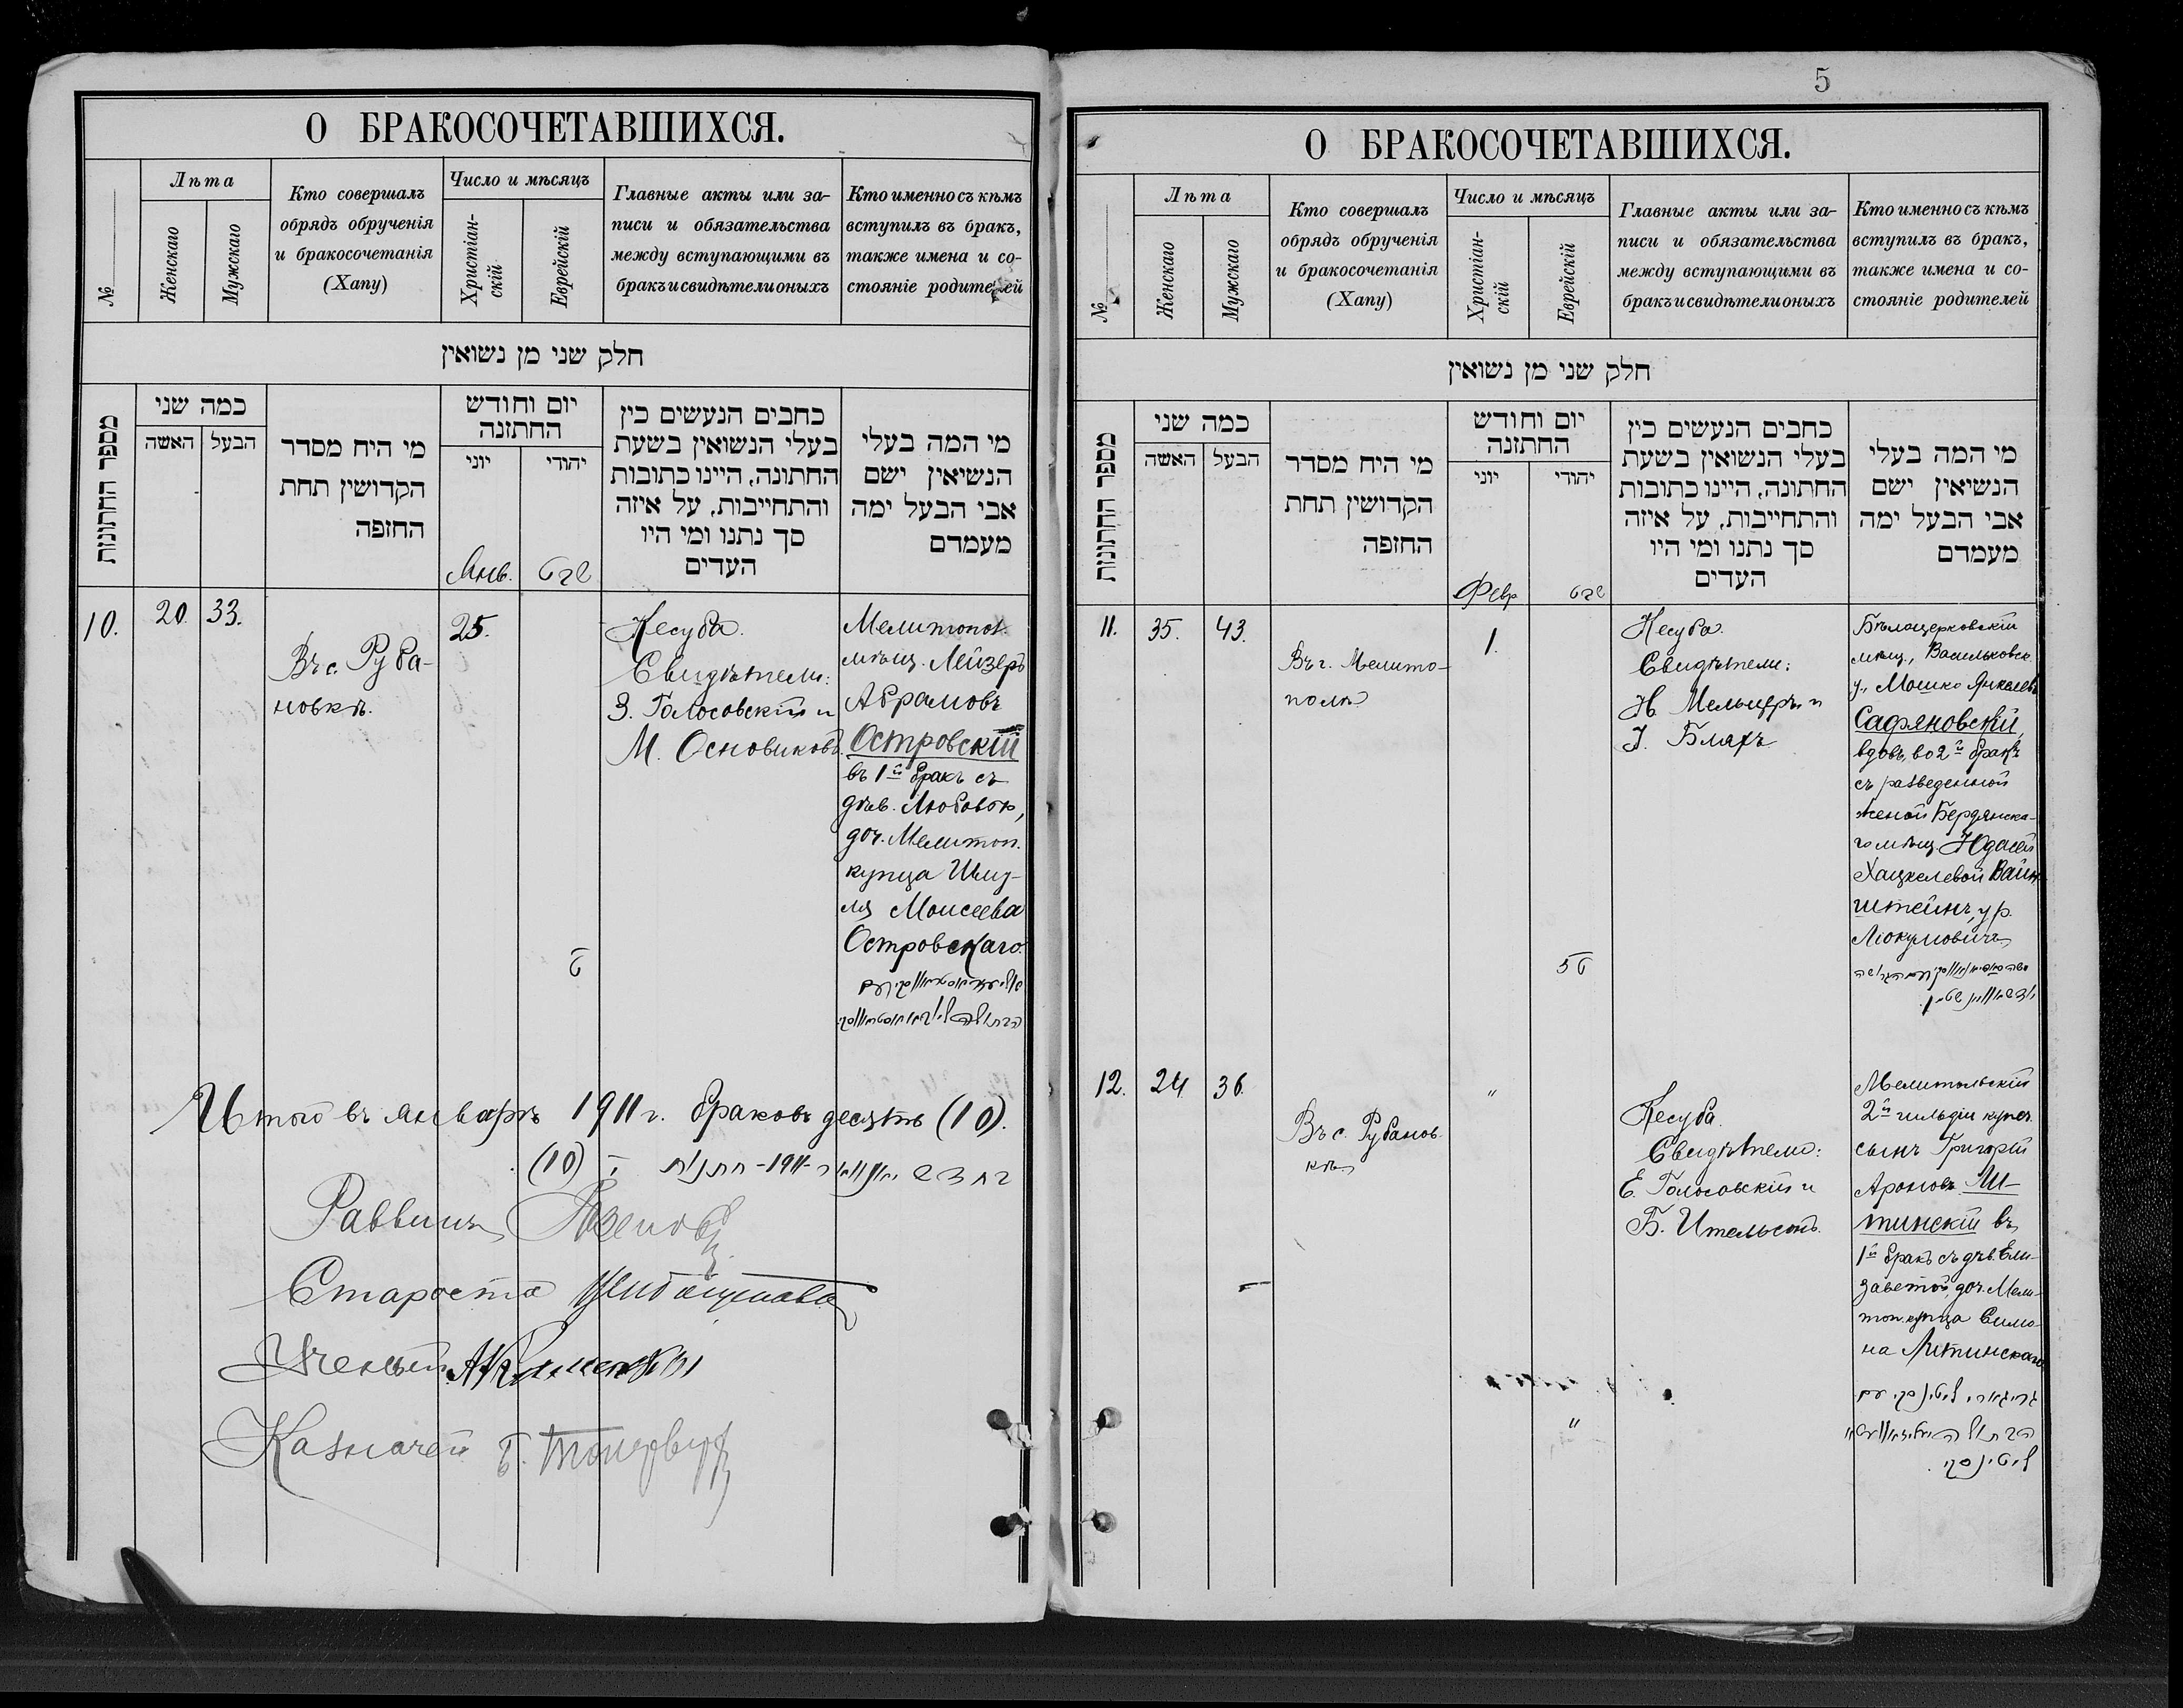 О БРАКОСОЧЕТАВШИХСЯ.
№
Лѣта
Женскаго
Мужскаго
Кто совершалъ
обрядъ обрученія
и бракосочетанія
(Хапу)
Число и мѣсяцъ
Христіан-
скій
Еврейскій
Главные акты или за-
писи и обязательства
между вступающими въ
бракъ и свидѣтели оныхъ
Кто именно съ кѣмъ
вступилъ въ бракъ,
также имена и со-
стояніе родителей
חלק שני מן נשואין
מספר החתונות
כמה שני
האשה
הבעל
מי היח מסדר
הקדושין תחת
החזפה
יום וחודש
החתזנה
יוני
יהודי
Янв.
שבט
כחבים הנעשים כין
בעלי הנשואין בשעת
החתונה, היינו כתובות
והתחייבות, על איזה
סך נתנו ומי היו
העדים
מי המה בעלי
הנשיאין ישם
אבי הבעל ימה
מעמדם
10.
20
33.
Въ с. Руба-
новкѣ.
25.
Кесуба.
Свидѣтели:
З. Голосовскій и
М. Основиковъ.
Мелитопол.
мѣщ. Лейзеръ
Абрамовъ
Островскій
въ 1й бракъ съ
дѣв. Любовью,
доч. Мелитоп.
купца Шму-
ля Моисеева
Островскаго.
Итого въ январѣ 1911 г. браковъ десять (10).
(10)
-1911-
Раввинъ
Староста
Ученый А. Каменскій
Казначей
5
О БРАКОСОЧЕТАВШИХСЯ.
№
Лѣта
Женскаго
Мужскаго
Кто совершалъ
обрядъ обрученія
и бракосочетанія
(Хапу)
Число и мѣсяцъ
Христіан-
скій
Еврейскій
Главные акты или за-
писи и обязательства
между вступающими въ
бракъ и свидѣтели оныхъ
Кто именно съ кѣмъ
вступилъ въ бракъ,
также имена и со-
стояніе родителей
חלק שני מן נשואין
מספר החתונות
כמה שני
האשה
הבעל
מי היח מסדר
הקדושין תחת
החזפה
יום וחודש
החתזנה
יוני
יהודי
Февр
שבט
כחבים הנעשים כין
בעלי הנשואין בשעת
החתונה, היינו כתובות
והתחייבות, על איזה
סך נתנו ומי היו
העדים
מי המה בעלי
הנשיאין ישם
אבי הבעל ימה
מעמדם
11.
35.
43.
Въ г. Мелито-
полѣ
1.
Кесуба.
Свидѣтели:
Н. Мельцеръ и
І. Бляхъ
Бѣлоцерковскій
мѣщ., Васильковск.
у., Мошко Янкелевъ
Сафяновскій,
вдовъ, во 2й бракъ
съ разведенной
женой Бердянска-
го мѣщ. Юдасей
Хацкелевой Вайн-
штейнъ, ур.
Люкумовичъ
12.
24
36
Въ с. Рубанов-
кѣ
"
Кесуба.
Свидѣтели:
Е. Голосовскій и
Б. Ительсонъ.
Мелитпольскій
2й гильдіи купеч.
сынъ Григорій
Ароновъ Ли-
тинскій въ
1й бракъ съ дѣв. Ели-
заветой, доч. Мели-
топ. купца Симо-
на Литинскаго
"